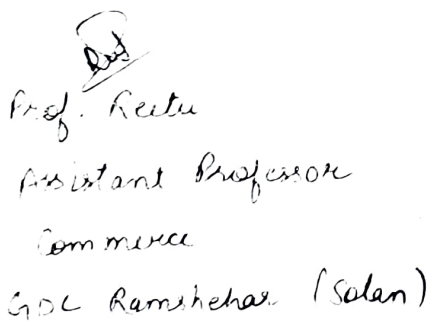 Prof. Reetu
Assistant Professor
Commerce
GDC Ramshehar (Solan)